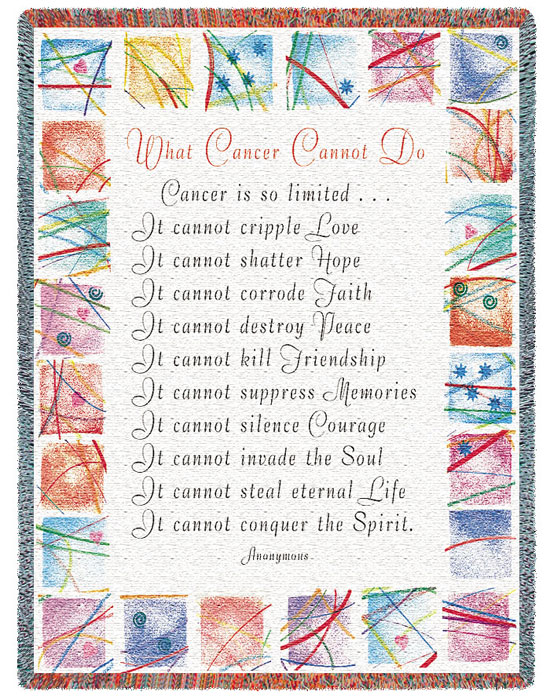 What Cancer Cannot Do
Cancer is so limited . . .
It cannot cripple Love
It cannot shatter Hope
It cannot corrode Faith
It cannot destroy Peace
It cannot kill Friendship
It cannot suppress Memories
It cannot silence Courage
It cannot invade the Soul
It cannot steal eternal Life
It cannot conquer the Spirit.
Anonymous